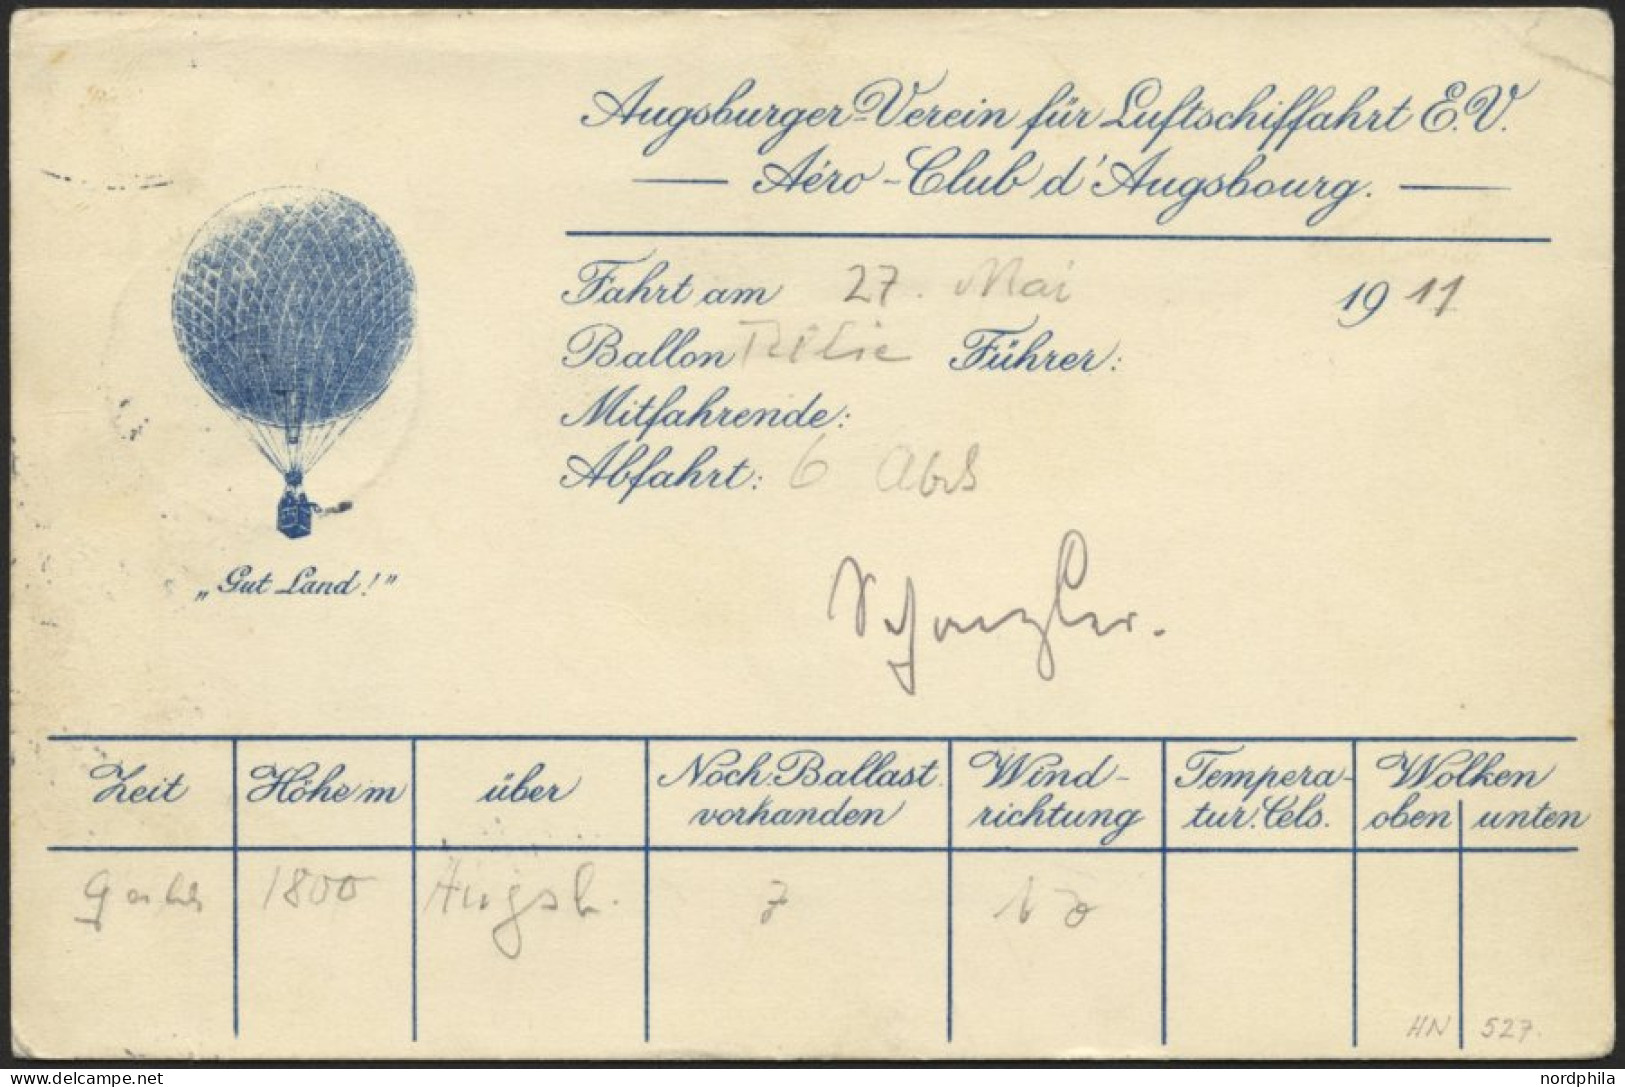 Augsburger-Verein für Luftschiffahrt E.V.
— Aéro-Club d'Augsbourg. —
Fahrt am 27. Mai 1911
Ballon Führer:
Mitfahrende:
Abfahrt: 6
„Gut Land!”
Zeit Höhe m über Noch Ballast vorhanden Wind-richtung Tempera-tur. Cels. Wolken oben unten
1800 Augsb. 7
HN 527.
nordphila